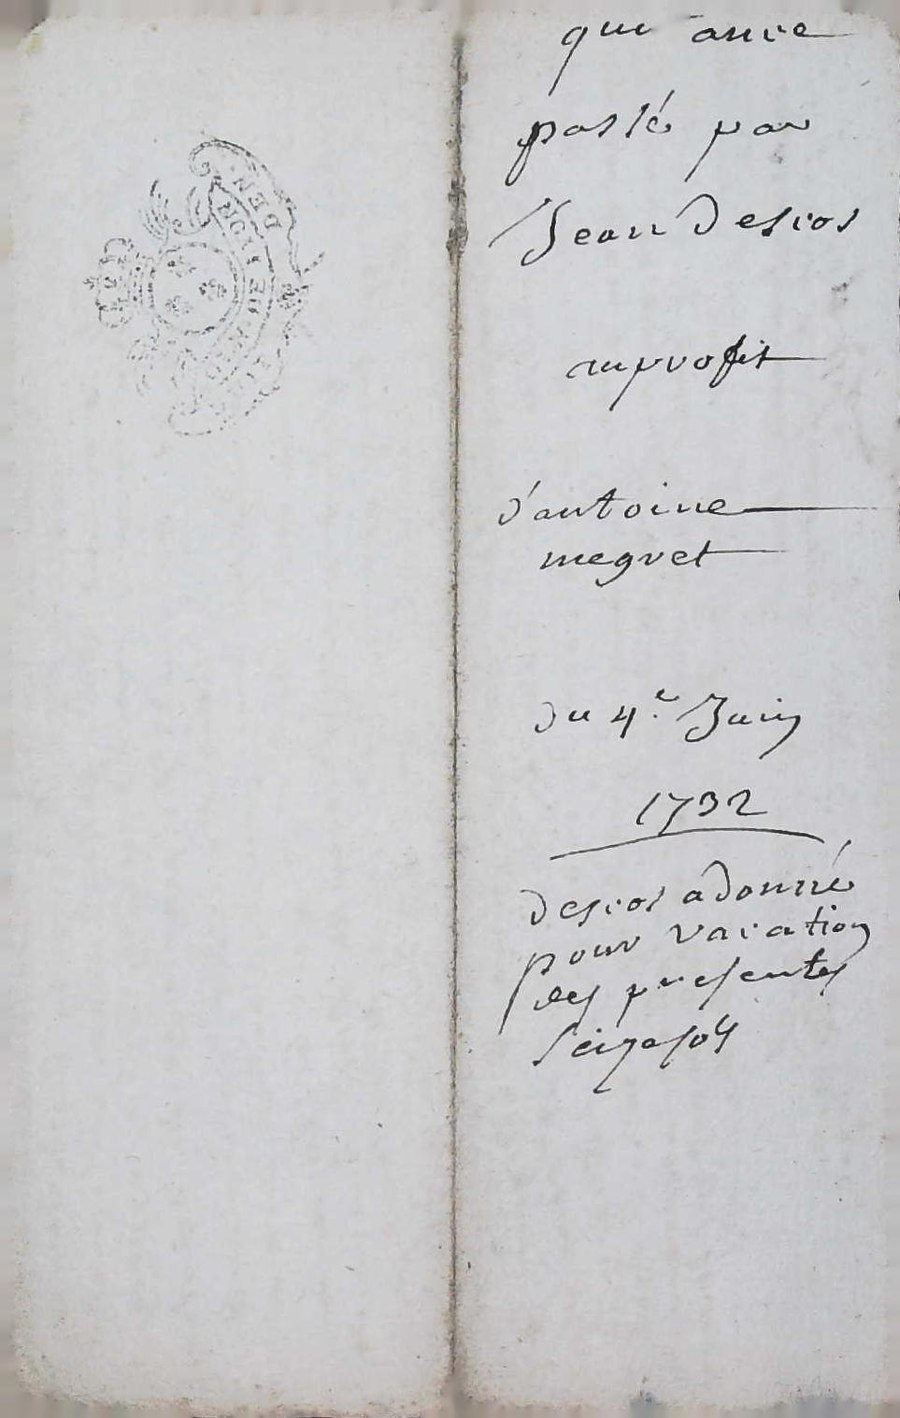 quitance
passé par
Jean Descos
auprofit
d'antoine
megret
du 4e. Juin
1732
descos a donné
pour vacation
des presentes
seize sols